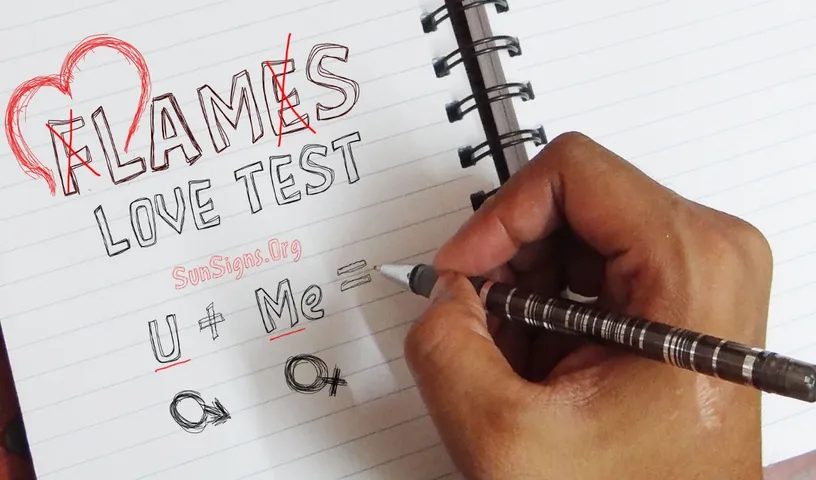 FLAMES
LOVE TEST
SunSigns.Org
U + Me =